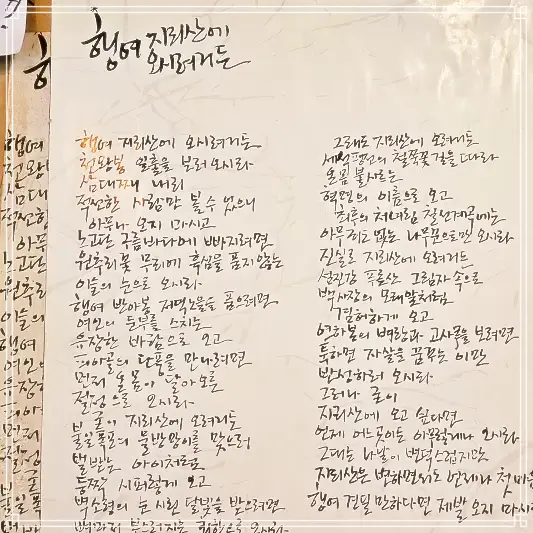 행여 지리산에
오시려거든
행여 지리산에 오시려거든
천왕봉 일출을 보러 오시라
삼대째 내리
적선한 사람만 볼 수 있으니
아무나 오지 마시고
노고단 구름바다에 빠지려면
원추리꽃 무리에 흑심을 품지 않는
이슬의 눈으로 오시라
행여 반야봉 저녁노을을 품으려면
여인의 둔부를 스치는
유장한 바람으로 오고
피아골의 단풍을 만나려면
먼저 온몸이 달아오른
절정으로 오시라
굳이 지리산에 오려거든
불일폭포의 물방망이를 맞으러
벌받는 아이처럼
등짝 시퍼렇게 오고
벽소령의 눈 시린 달빛을 받으려면
뼈마저 부스러지는 회한으로 오시라
그래도 지리산에 오려거든
세석평전의 철쭉꽃 길을 따라
온몸 불사르는
혁명의 이름으로 오고
최후의 처녀림 칠선계곡에는
아무 죄도 없는 나무꾼으로만 오시라
진실로 지리산에 오려거든
섬진강 푸른 산 그림자 속으로
백사장의 모래알처럼
겸허하게 오고
연하봉의 벼랑과 고사목을 보려면
툭하면 자살을 꿈꾸는 이만
반성하러 오시라
그러나 굳이
지리산에 오고 싶다면
언제 어느 곳이든 아무렇게나 오시라
그대는 나날이 변덕스럽지만
지리산은 변하면서도 언제나 첫 마음
행여 견딜 만하다면 제발 오지 마시
행여
천왕
삼대
적선한
아무
노고단
원추리
이슬의
행여
여인의
유장한
피아
먼저
절정
굳이
불일폭